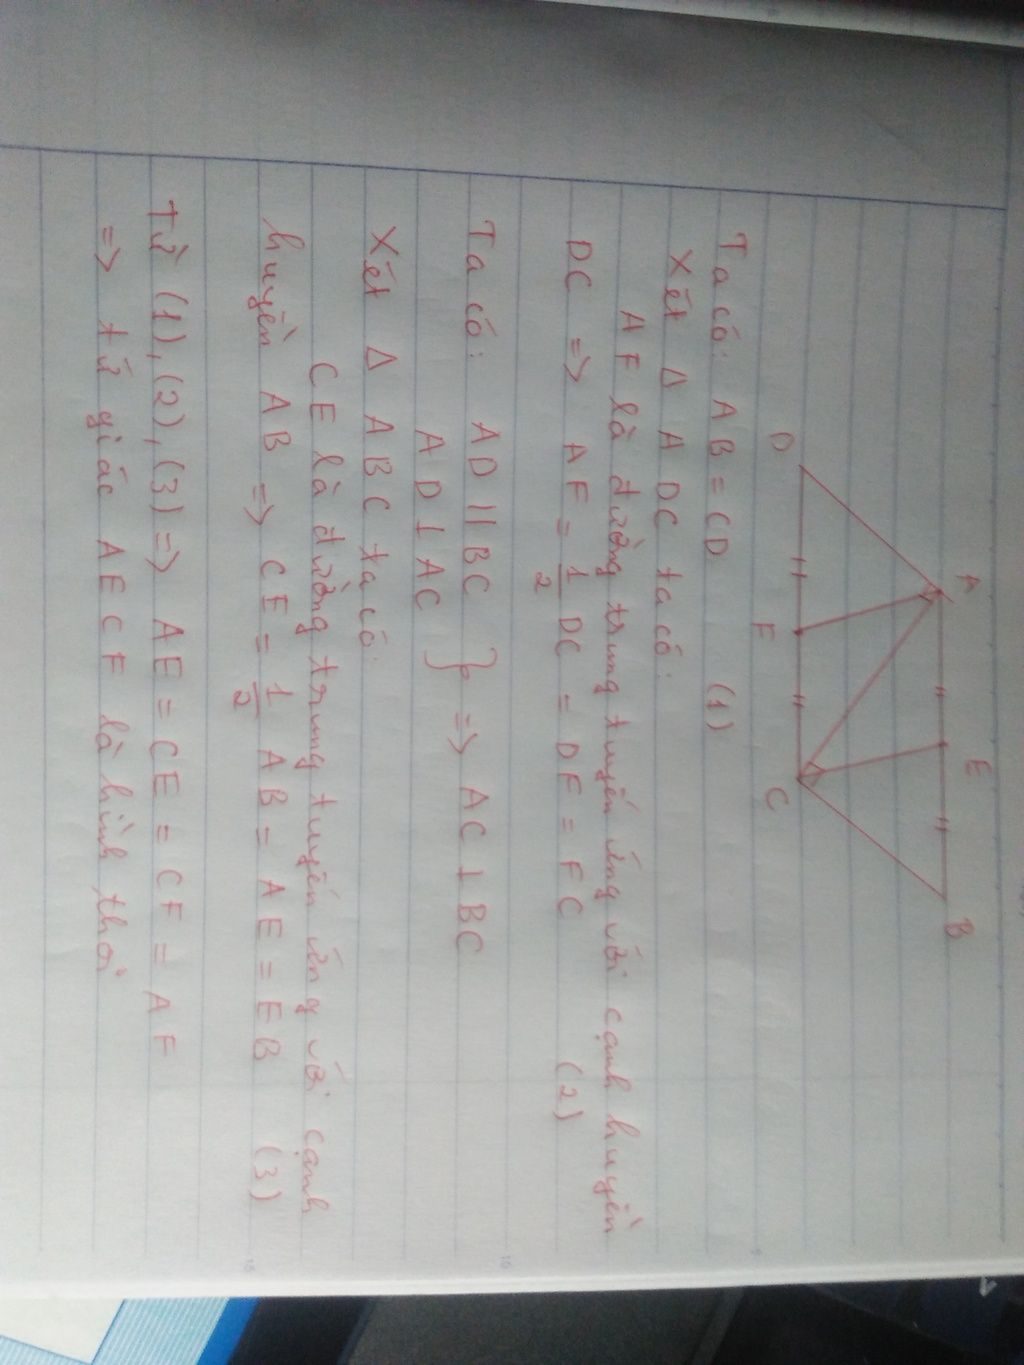 A E B
D F C
Ta có: AB = CD (1)
Xét Δ ADC ta có:
AF là đường trung tuyến ứng với cạnh huyền
DC => AF = 1/2 DC = DF = FC (2)
Ta có: AD // BC
AD ⊥ AC } => AC ⊥ BC
Xét Δ ABC ta có:
CE là đường trung tuyến ứng với cạnh
huyền AB => CE = 1/2 AB = AE = EB (3)
Từ (1), (2), (3) => AE = CE = CF = AF
=> tứ giác AECF là hình thoi